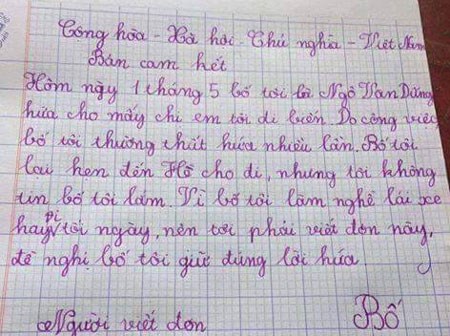 Cộng hòa - Xã hội - Chủ nghĩa - Việt Nam
Bản cam hết
Hôm nậy 1 tháng 5 bố tôi là Ngô Văn Dũng
hứa cho mấy chị em tôi đi biển. Do công việc
bố tôi thường thất hứa nhiều lần. Bố tôi
lại hẹn đến Hồ cho đi, nhưng tôi không
tin bố tôi lắm. Vì bố tôi làm nghề lái xe
hay đi tối ngày, nên tôi phải viết đơn này,
đề nghị bố tôi giữ đúng lời hứa
Người viết đơn Bố